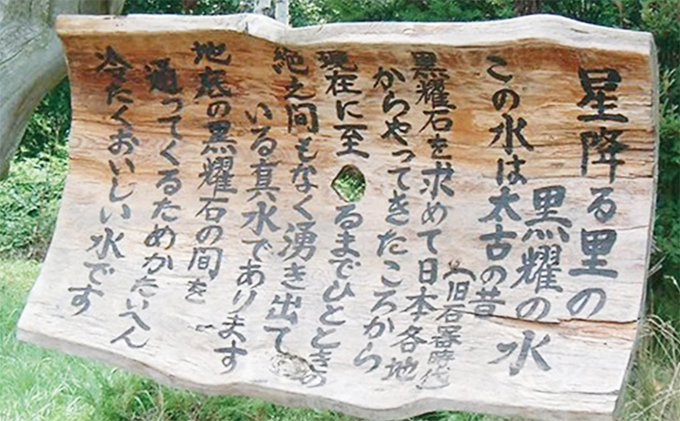 星降る里の
黒耀の水
この水は太古の昔
(旧石器時代)
黒耀石を求めて日本各地
からやってきたころから
現在に至るまでひとときの
絶え間もなく湧き出て
いる真水であります
地底の黒耀石の間を
通ってくるためかたいへん
冷たくおいしい水です